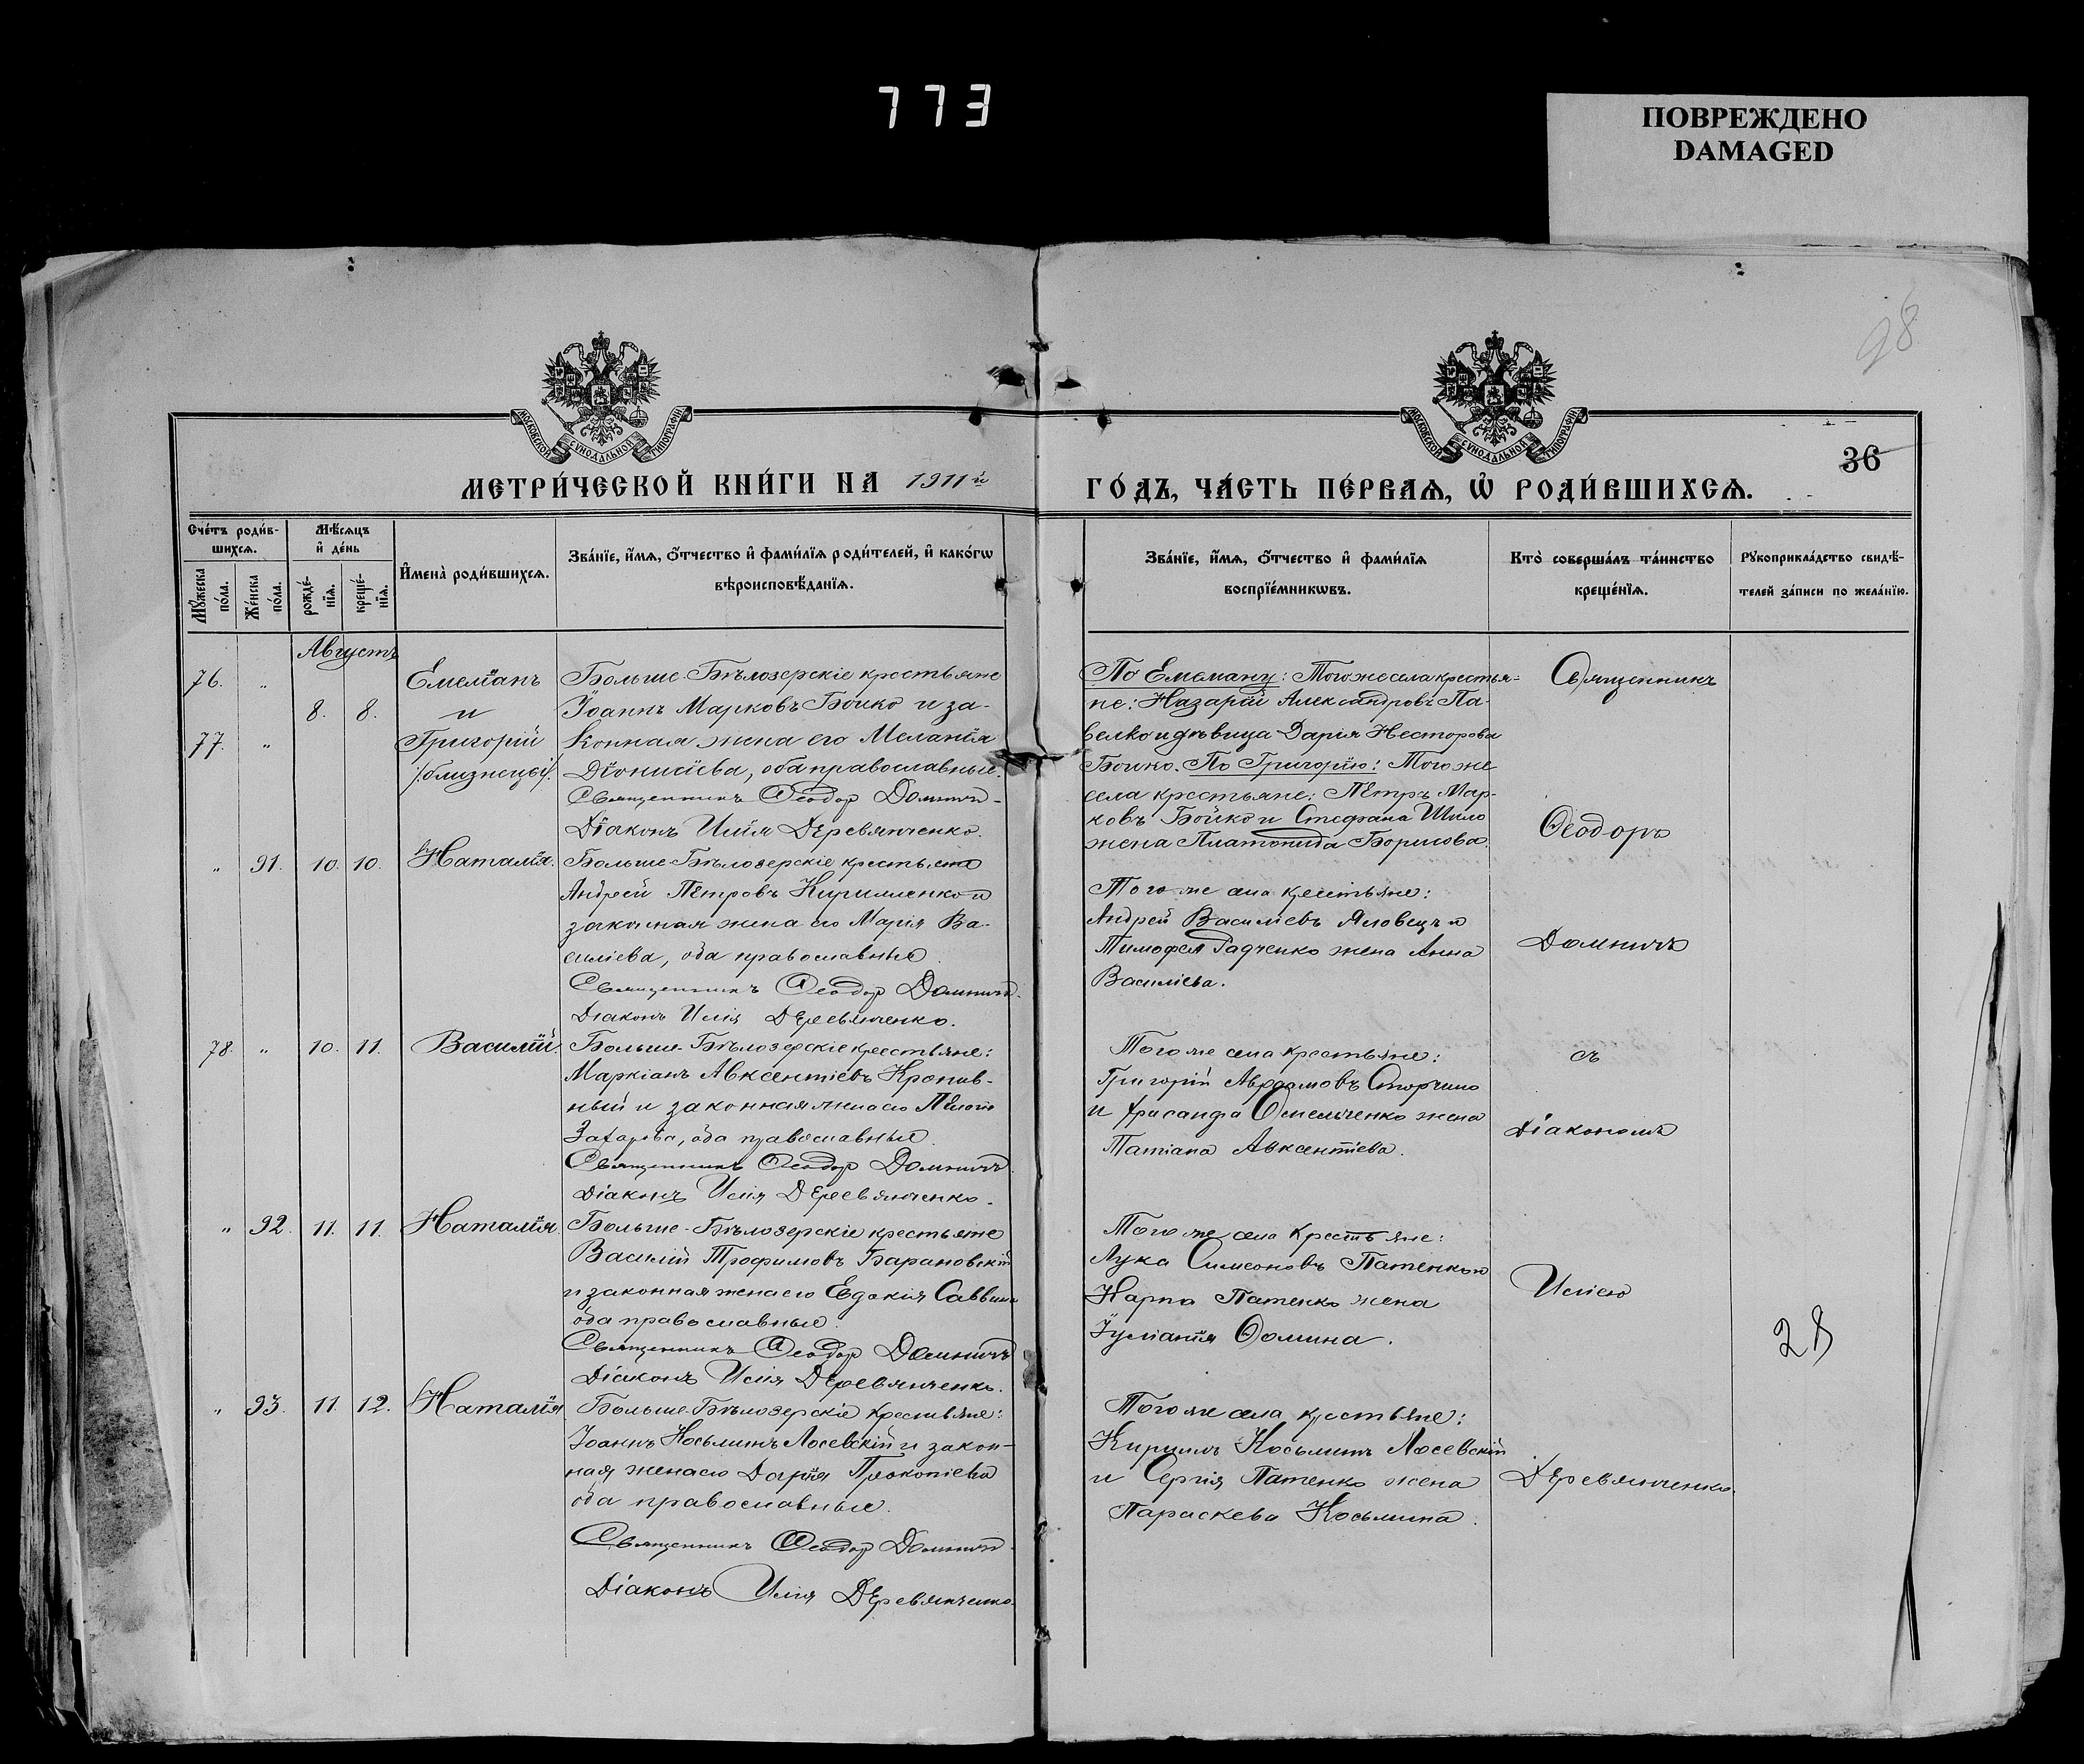 773
ПОВРЕЖДЕНО
DAMAGED
98
МОСКОВСКОЙ СУНОДАЛЬНОЙ ТИПОГРАФІИ
МОСКОВСКОЙ СУНОДАЛЬНОЙ ТИПОГРАФІИ
36
МЕТРИ́ЧЕСКОЙ КНИ́ГИ НА 1911й
ГО́ДЪ, ЧА́СТЬ ПЕ́РВАѦ, Ѡ҆ РОДИ́ВШИХСѦ.
Сче́тъ роди́в-
шихсѧ.
Мꙋжеска по́ла.
Же́нска по́ла.
Мѣ́сѧцъ
и҆ де́нь
рожде́-
нїѧ.
креще́-
нїѧ.
И҆мена̀ роди́вшихсѧ.
Зва́нїе, и҆́мѧ, ѻ҆́тчество и҆ фами́лїѧ роди́телей, и҆ како́гѡ
вѣроисповѣ́данїѧ.
Зва́нїе, и҆́мѧ, ѻ҆́тчество и҆ фами́лїѧ
воспрїе́мникѡвъ.
Кто̀ соверша́лъ та́инство
креще́нїѧ.
Рꙋкоприкла́дство свидѣ́-
телей за́писи по жела́нїю.
Августъ
76. „ 8. 8. Емеліанъ
и
77. „ Григорій
/близнецы/.
Больше-Бѣлозерскіе крестьяне
Іоаннъ Марковъ Бойко и за-
конная жена его Меланія
Діонисіева, оба православные.
Священникъ Ѳеодор Домничъ
Діаконъ Илія Деревянченко.
По Емеліану: Того же села крестья-
не: Назарій Александровъ Па-
велко и дѣвица Дарія Несторова
Бойко. По Григорію: Того же
села крестьяне: Петръ Мар-
ковъ Бойко и Стефана Шило
жена Платонида Борисова.
Священникъ
Ѳеодоръ
„ 91. 10. 10. Наталія.
Больше-Бѣлозерскіе крестьяне
Андрей Петровъ Кириленко и
законная жена его Марія Ва-
силіева, оба православные.
Священникъ Ѳеодор Домничъ.
Діаконъ Илія Деревянченко.
Того же села крестьяне:
Андрей Василіевъ Яловецъ и
Тимофея Радченко жена Анна
Василіева.
Домничъ
78. „ 10. 11. Василій.
Больше-Бѣлозерскіе крестьяне:
Маркіанъ Авксентіевъ Кропив-
ный и законная жена его
Захарова, оба православные.
Священникъ Ѳеодор Домничъ.
Діаконъ Илія Деревянченко.
Того же села крестьяне:
Григорій Аврамовъ Сторчило
и Омельченко жена
Татіана Авксентіева.
съ
Діакономъ
„ 92. 11. 11. Наталія.
Больше-Бѣлозерскіе крестьяне
Василій Трофимовъ Барановскій
и законная жена его Евдокія Саввина
оба православные.
Священникъ Ѳеодор Домничъ
Діаконъ Илія Деревянченко.
Того же села крестьяне:
Лука Симеоновъ Патенко и
Карпа Патенко жена
Іуліанія Ѳомина.
Иліею
28
„ 93. 11. 12. Наталія
Больше-Бѣлозерскіе крестьяне:
Іоаннъ Косьминъ Лосевскій и закон-
ная жена его Дарія Прокопіева
оба православные.
Священникъ Ѳеодор Домничъ.
Діаконъ Илія Деревянченко.
Того же села крестьяне:
Кириллъ Косьминъ Лосевскій
и Сергія Патенко жена
Параскева Косьмина.
Деревянченко.